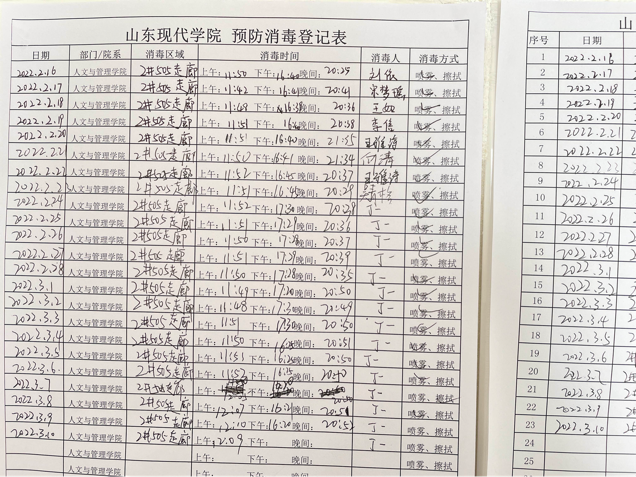 山东现代学院 预防消毒登记表
日期 部门/院系 消毒区域 消毒时间 消毒人 消毒方式
2022.2.16 人文与管理学院 2#505走廊 上午：11:50 下午：16:40 晚间：20:25 喷雾、擦拭
2022.2.17 人文与管理学院 2#505走廊 上午：11:42 下午：16:41 晚间：20:41 喷雾、擦拭
2022.2.18 人文与管理学院 2#505走廊 上午：11:48 下午：16:38 晚间：20:36 喷雾、擦拭
2022.2.19 人文与管理学院 2#505走廊 上午：11:51 下午： 晚间：20:38 李倩 喷雾、擦拭
2022.2.20 人文与管理学院 2#505走廊 上午：11:51 下午：16:40 晚间：21:55 喷雾、擦拭
2022.2.21 人文与管理学院 2#505走廊 上午：11:50 下午：16:41 晚间：21:34 喷雾、擦拭
2022.2.22 人文与管理学院 2#505走廊 上午：11:52 下午：16:45 晚间：20:37 喷雾、擦拭
2022.2.23 人文与管理学院 2#505走廊 上午：11:51 下午：16:45 晚间：20:29 喷雾、擦拭
2022.2.24 人文与管理学院 2#505走廊 上午：11:52 下午：17:30 晚间：20:28 丁一 喷雾、擦拭
2022.2.25 人文与管理学院 2#505走廊 上午：11:51 下午：17:29 晚间：20:36 丁一 喷雾、擦拭
2022.2.26 人文与管理学院 2#505走廊 上午：11:50 下午：17:28 晚间：20:37 丁一 喷雾、擦拭
2022.2.27 人文与管理学院 2#505走廊 上午：11:51 下午：17:29 晚间：20:39 丁一 喷雾、擦拭
2022.2.28 人文与管理学院 2#505走廊 上午：11:50 下午：17:28 晚间：20:35 丁一 喷雾、擦拭
2022.3.1 人文与管理学院 2#505走廊 上午：11:49 下午：17:30 晚间：20:50 丁一 喷雾、擦拭
2022.3.2 人文与管理学院 2#505走廊 上午：11:48 下午：17:30 晚间：20:49 丁一 喷雾、擦拭
2022.3.3 人文与管理学院 2#505走廊 上午：11:51 下午：17:30 晚间：20:50 丁一 喷雾、擦拭
2022.3.4 人文与管理学院 2#505走廊 上午：11:50 下午： 晚间：20:51 丁一 喷雾、擦拭
2022.3.5 人文与管理学院 2#505走廊 上午：11:51 下午： 晚间：20:50 丁一 喷雾、擦拭
2022.3.6 人文与管理学院 2#505走廊 上午：11:52 下午： 晚间： 丁一 喷雾、擦拭
2022.3.7 人文与管理学院 上午： 下午： 晚间： 丁一 喷雾、擦拭
2022.3.8 人文与管理学院 2#505走廊 上午：12:07 下午：16:21 晚间：20:51 丁一 喷雾、擦拭
2022.3.9 人文与管理学院 2#505走廊 上午：12:10 下午：16:20 晚间：20:52 丁一 喷雾、擦拭
2022.3.10 人文与管理学院 2#505走廊 上午：12:09 下午： 晚间： 丁一 喷雾、擦拭
人文与管理学院 上午： 下午： 晚间： 喷雾、擦拭
人文与管理学院 上午：
山
序号 日期
1 2022.2.16
2 2022.2.17
3 2022.2.18
4 2022.2.19
5 2022.2.20
6 2022.2.21
7 2022.2.22
8 2022.2.23
9 2022.2.24
10 2022.2.25
11 2022.2.26
12 2022.2.27
13 2022.2.28
14 2022.3.1
15 2022.3.2
16 2022.3.3
17 2022.3.4
18 2022.3.5
19 2022.3.6
20 2022.3.7
21 2022.3.8
22 2022.3.9
23 2022.3.10
24
25